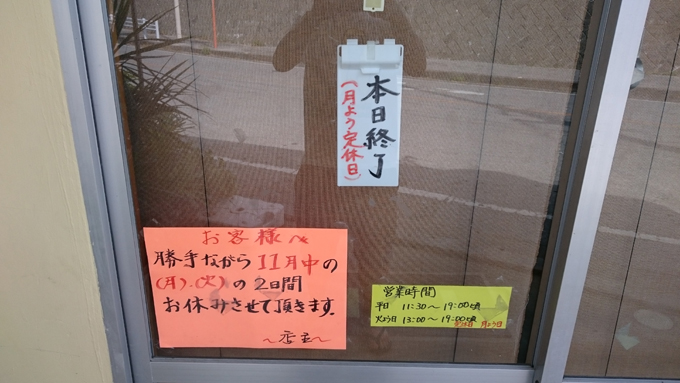 本日終了
(月よう定休日)
お客様へ
勝手ながら11月中の
(月).(火)の2日間
お休みさせて頂きます.
〜店主〜
営業時間
平日 11:30〜19:00頃
火よう日 13:00〜19:00頃
定休日 月よう日